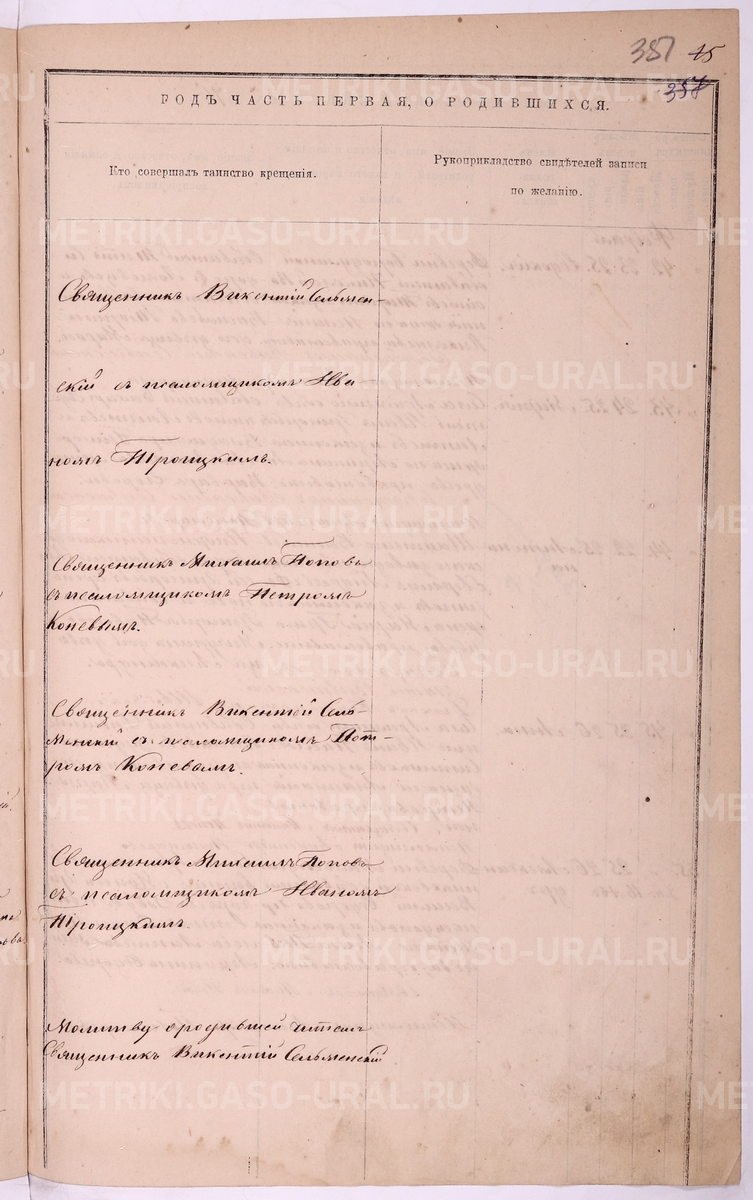 387 45
358
РОДЪ ЧАСТЬ ПЕРВАЯ, О РОДИВШИХСЯ.
Кто совершалъ таинство крещенія.
Рукоприкладство свидѣтелей записи
по желанію.
Священникъ Викентій Сельмен-
скій съ псаломщикомъ Ива-
номъ Троицкимъ.
Священникъ Михаилъ Поповъ
съ псаломщикомъ Петромъ
Коневымъ.
Священникъ Викентій Сель-
менскій съ псаломщикомъ Пет-
ромъ Коневымъ.
Священникъ Михаилъ Поповъ
съ псаломщикомъ Иваномъ
Троицкимъ.
Молитву ородившей читалъ
Священникъ Викентій Сельменскій
METRIKI.GASO-URAL.RU